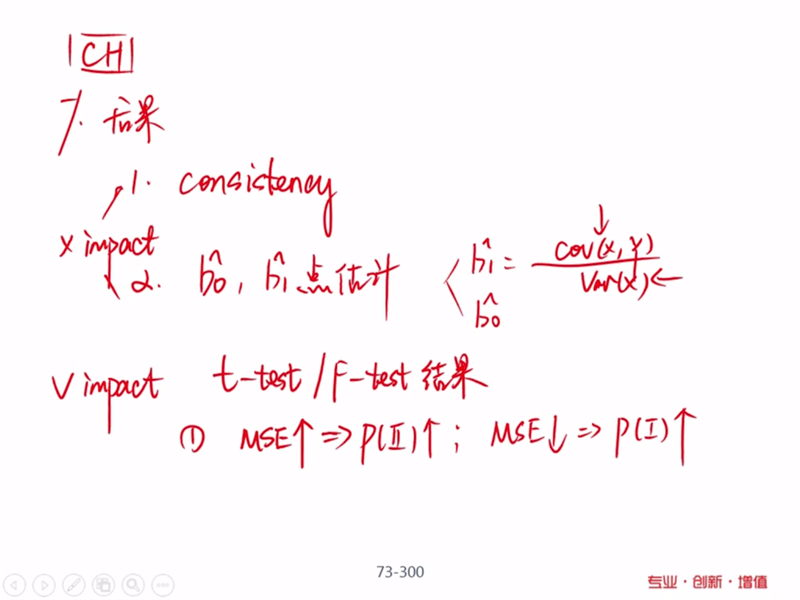 |CH|
7. 后果
1. consistency
x impact
2. b̂0, b̂1 点估计
b̂1 = cov(x, y) / Var(x) ←
b̂0
√ impact t-test / F-test 结果
① MSE↑ => P(II)↑ ; MSE↓ => P(I)↑
73-300
专业·创新·增值